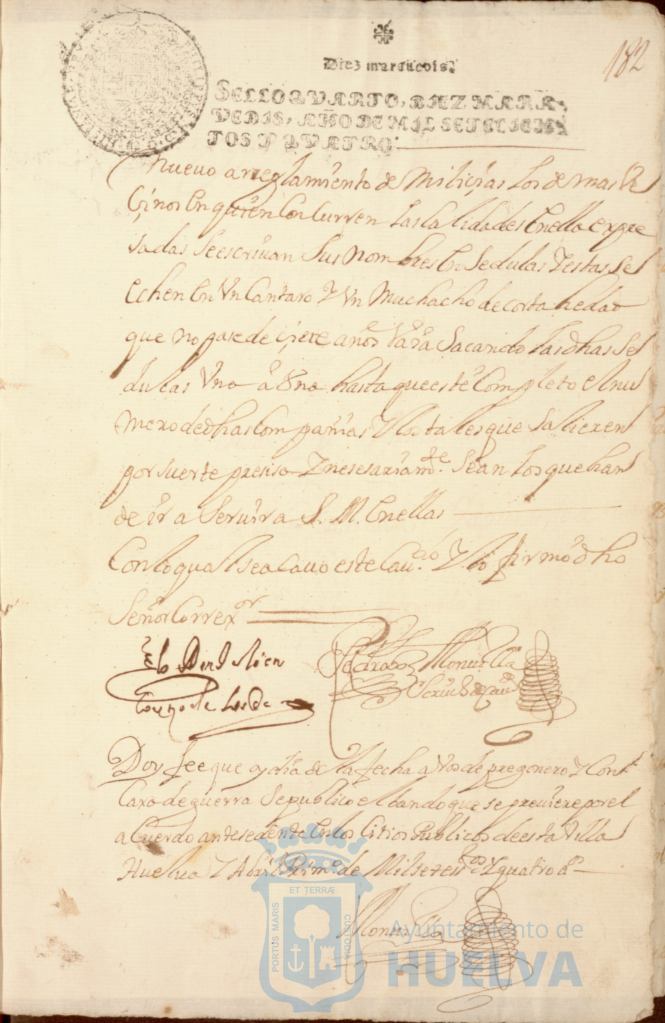 182
Diez marauedis.
SELLO QVARTO, DIEZ MARA-
VEDIS, AÑO DE MIL SETECIEN-
TOS Y QVATRO.
Nuevo arreglamiento de Miliçias los demas Ve
çinos en quien Concurren las calidades En ella expre
sadas se escriuan sus nombres En sedulas Y estas se
echen En Vn Cantaro Y Vn Muchacho de corta hedad
que no pase de siete años Vaia Sacando las dhas se
dulas Vna a Vna hasta que este Completo el nu
mero de dhas Compañias Y los tales que Salieren
por suerte presiso Y nesesariamte. Sean los que han
de ir a Seruir a S. M. En ellas
Con lo qual se acauo este Cauildo Y lo firmo dho
Señor Correxor
Monuilla
Doy fee que oy dia de la fecha a Vos de pregonero Y Con
Caxa de guerra Se publico el bando que se preuiene por el
aCuerdo antesedente En los Citios Publicos de esta Villa
Huelua Y Abril Primo. de Mil setestos. Y quatro as.
Monuilla
PORTUS MARIS
ET TERRÆ
CUSTODIA
Ayuntamiento de
HUELVA